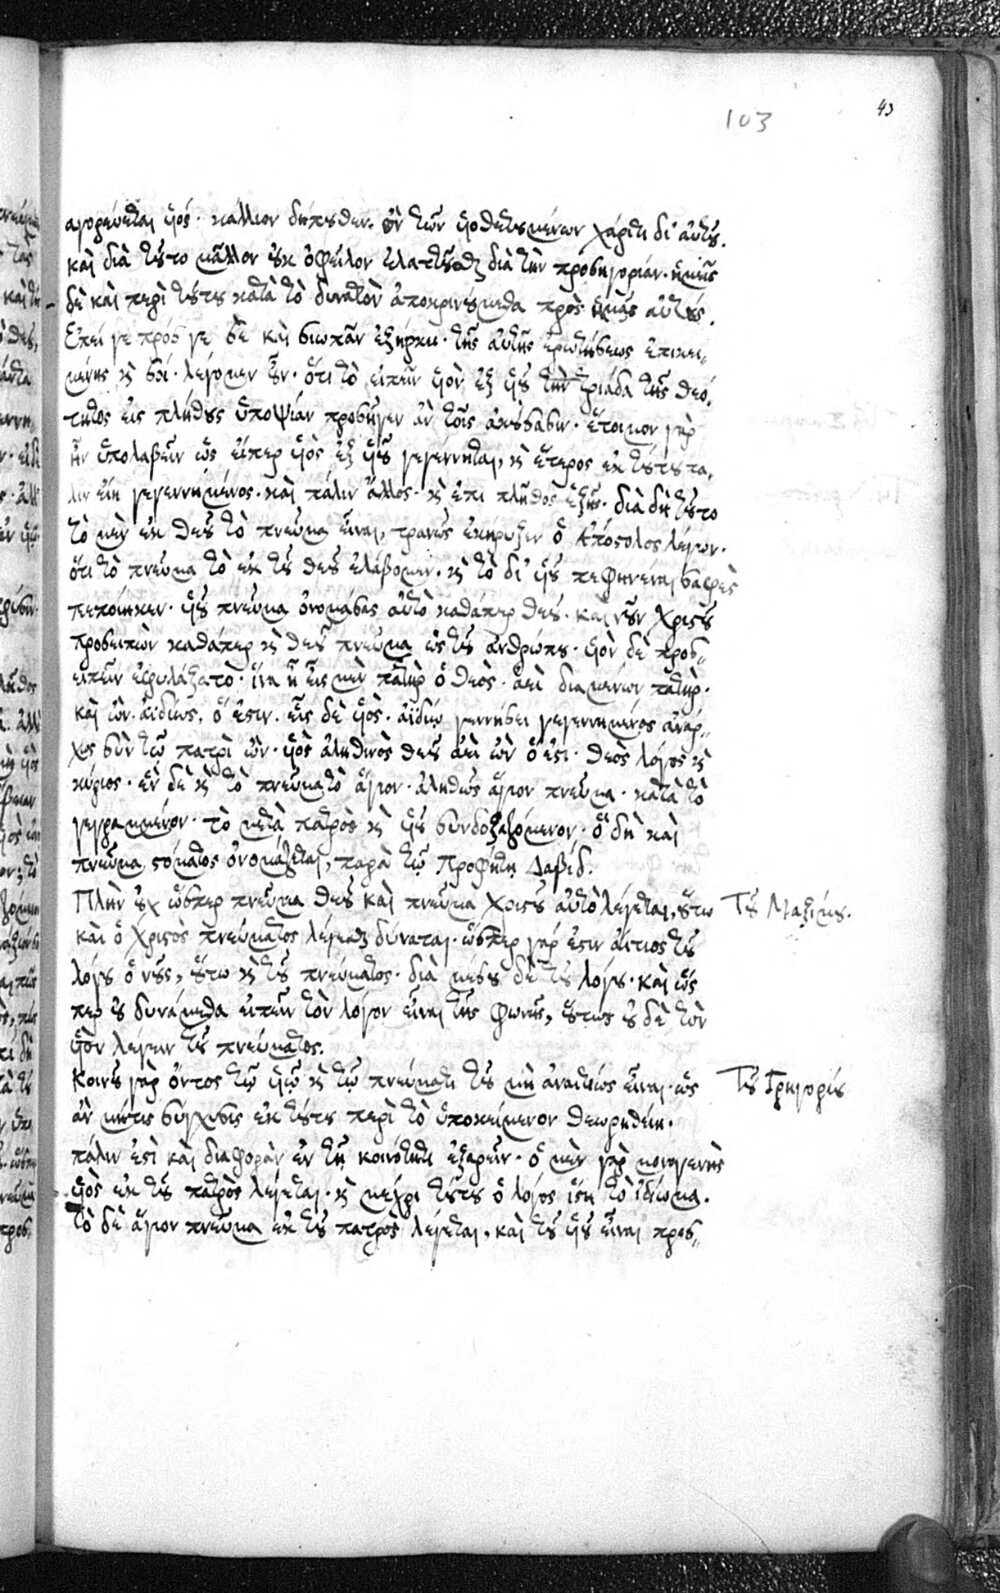 103
43
αγορεύεται υἱός· κάλλιον δήπουθεν. ὂν τῶν υἱοθετουμένων χάριτι δι' αὐτοῦ.
καὶ διὰ τοῦτο μᾶλλον οὐκ ὀφεῖλον ἐλαττοῦσθαι διὰ τὴν προσηγορίαν· ἡμεῖς
δὲ καὶ περὶ τούτου κατὰ τὸ δυνατὸν ἀποκρινούμεθα πρὸς ἡμᾶς αὐτούς.
Ἐπεί γε πρός γε σὲ καὶ σιωπᾶν ἐξήρκει· τῆς αὐτῆς ἐρωτήσεως ἐπικει„
μένης καὶ σοί· λέγομεν οὖν· ὅτι τὸ εἰπεῖν υἱὸν ἐξ υἱοῦ τὴν τριάδα τῆς θεό„
τητος εἰς πλήθους ὑποψίαν προσῆγεν ἂν τοῖς ἀκούσασιν· ἕτοιμον γὰρ
ἦν ὑπολαβεῖν ὡς εἴπερ υἱὸς ἐξ υἱοῦ γεγέννηται, καὶ ἕτερος ἐκ τούτου πά„
λιν εἴη γεγεννημένος· καὶ πάλιν ἄλλος· καὶ ἐπι πλῆθος ἑξῆς· διὰ δὴ τοῦτο
τὸ μὲν ἐκ θεοῦ τὸ πνεῦμα εἶναι, τρανῶς ἐκήρυξεν ὁ Ἀπόστολος λέγων·
ὅτι τὸ πνεῦμα τὸ ἐκ τοῦ θεοῦ ἐλάβομεν· καὶ τὸ δι' υἱοῦ πεφηνέναι σαφὲς
πεποίηκεν· υἱοῦ πνεῦμα ὀνομάσας αὐτὸ καθάπερ θεοῦ· καὶ νοῦν Χριστοῦ
προσειπὼν καθάπερ καὶ θεοῦ πνεῦμα ὡς τοῦ ἀνθρώπου· υἱὸν δὲ προσ„
ειπεῖν ἐφυλάξατο· ἵνα ᾖ εἷς μὲν πατὴρ ὁ θεὸς· ἀεὶ διαμένων πατὴρ·
καὶ ὢν ἀϊδίως, ὅ ἐστιν· εἷς δὲ υἱὸς· ἀϊδίῳ γεννήσει γεγεννημένος ἀνάρ„
χως σὺν τῷ πατρὶ ὢν· υἱὸς ἀληθινὸς θεοῦ ἀεὶ ὢν ὅ ἐστι· θεὸς λόγος καὶ
κύριος· ἓν δὲ καὶ τὸ πνεῦμα τὸ ἅγιον· ἀληθῶς ἅγιον πνεῦμα· κατὰ τὸ
γεγραμμένον· τὸ μετὰ πατρὸς καὶ υἱοῦ συνδοξαζόμενον· ὃ δὴ καὶ
πνεῦμα στόματος ὀνομάζεται, παρὰ τῷ Προφήτῃ Δαβίδ.
Πλὴν οὐχ ὥσπερ πνεῦμα θεοῦ καὶ πνεῦμα Χριστοῦ αὐτὸ λέγεται, οὕτω Τοῦ Μαξίμου.
καὶ ὁ Χριστὸς πνεύματος λέγεσθαι δύναται· ὥσπερ γάρ ἐστιν αἴτιος τοῦ
λόγου ὁ νοῦς, οὕτω καὶ τοῦ πνεύματος· διὰ μέσου δὲ τοῦ λόγου· καὶ ὥς
περ οὐ δυνάμεθα εἰπεῖν τὸν λόγον εἶναι τῆς φωνῆς, οὕτως οὐδὲ τὸν
υἱὸν λέγειν τοῦ πνεύματος.
Κοινοῦ γὰρ ὄντος τῷ υἱῷ καὶ τῷ πνεύματι τοῦ μὴ ἀναιτίως εἶναι· ὡς Τοῦ Γρηγορίου
ἂν μήτις σύγχυσις ἐκ τούτου περὶ τὸ ὑποκείμενον θεωρηθείη·
πάλιν ἐστὶ καὶ διαφορὰν ἐν τῇ κοινότητι ἐξευρεῖν· ὁ μὲν γὰρ μονογενὴς
υἱὸς ἐκ τοῦ πατρὸς λέγεται· καὶ μέχρι τούτου ὁ λόγος ἵστη τὸ ἰδίωμα.
Τὸ δὲ ἅγιον πνεῦμα ἐκ τοῦ πατρὸς λέγεται, καὶ τοῦ υἱοῦ εἶναι προσ„